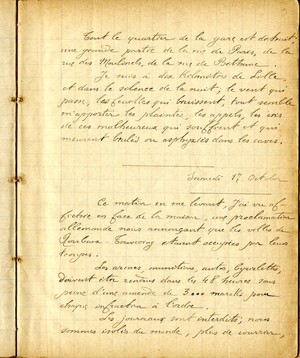 Tout le quartier de la gare est détruit
une grande partie de la rue de Paris, de la
rue des Molinels, de la rue de Béthune.
Je suis à dix kilomètres de Lille
et dans le silence de la nuit, le vent qui
passe, les feuilles qui bruissent, tout semble
m'apporter les plaintes, les appels, les cris
de ces malheureux qui souffrent et qui
meurent brûlés ou asphyxiés dans les caves.
Samedi 17 Octobre
Ce matin en me levant, j'ai vu af-
fichée en face de la maison, une proclamation
allemande nous annonçant que les villes de
Roubaix - Tourcoing étaient occupées par leurs
troupes.
Les armes, munitions, autos, bicyclettes,
doivent être rendues dans les 48 heures sous
peine d'une amende de 3.000 marks pour
chaque infraction à l'ordre.
Les journaux sont interdits, nous
sommes isolés du monde, plus de courrier,